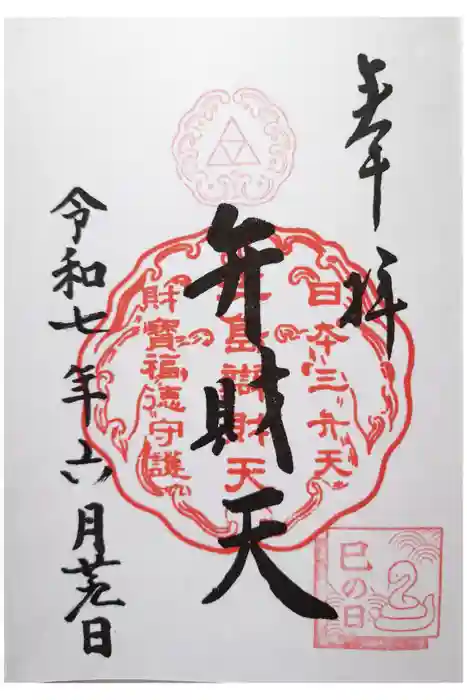 奉拝
日本三弁天
弁財天
島辯財天
財寶福徳守護
令和七年六月廿九日
巳の日